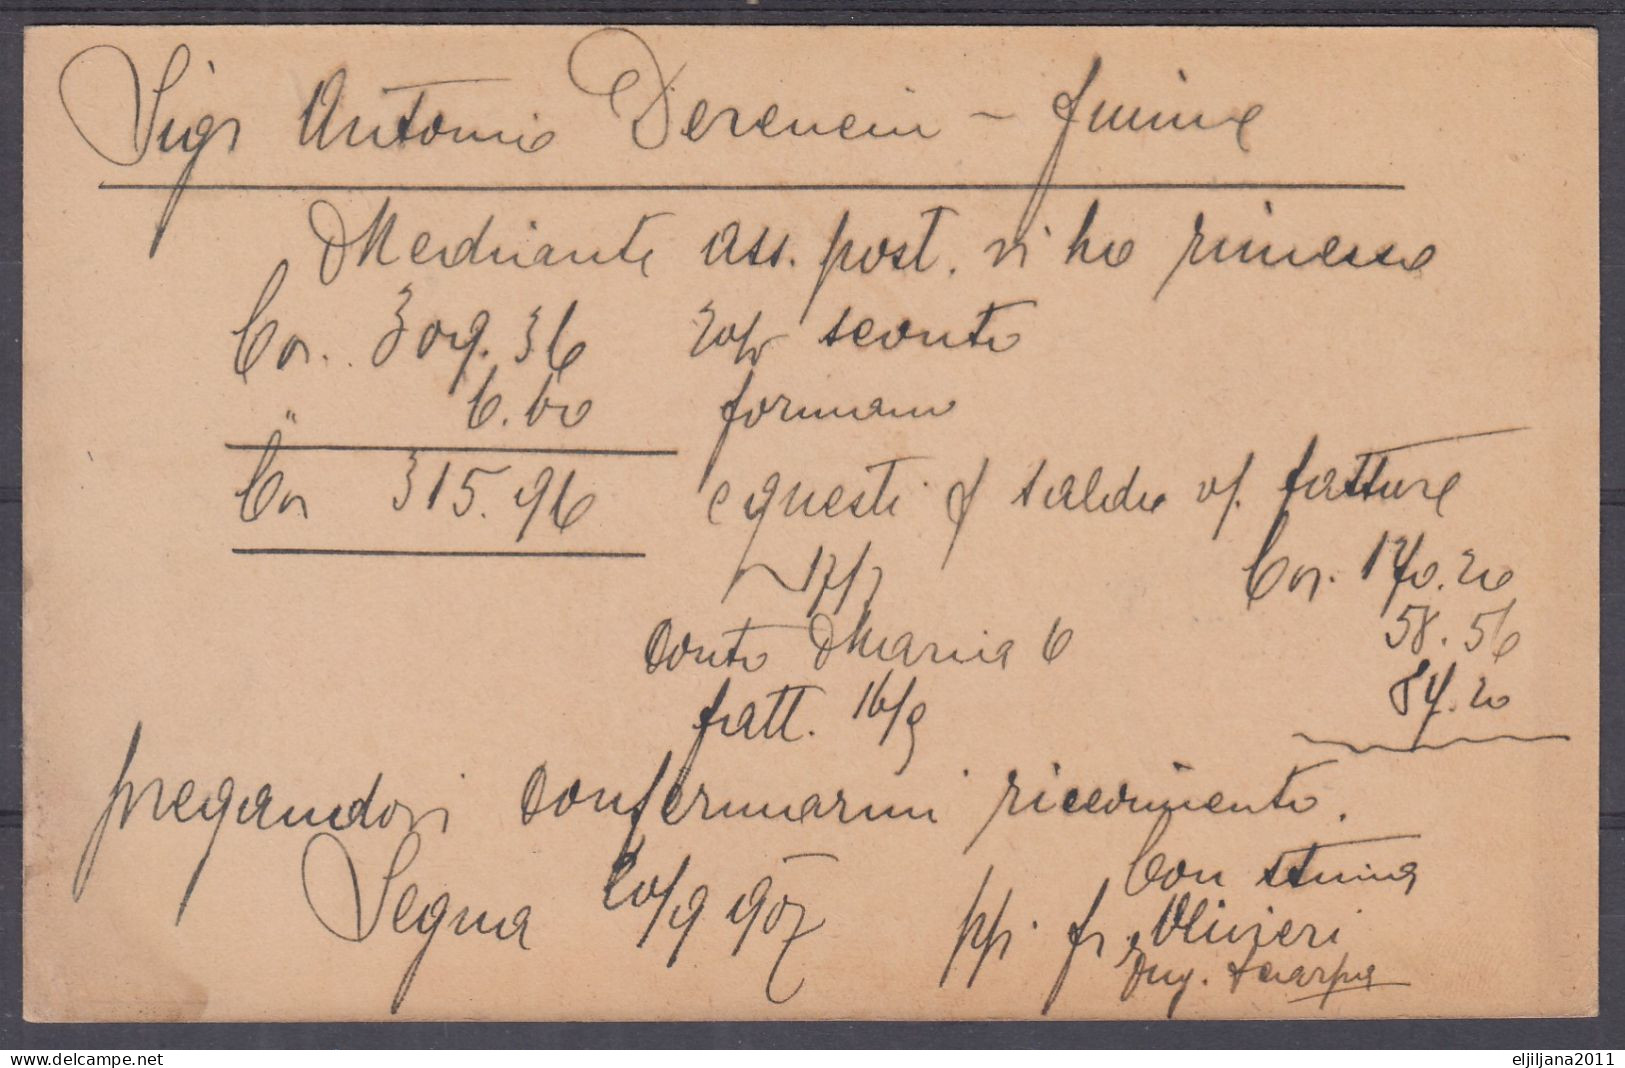 Sigr Antonio Derencin – Fiume
Mediante ass. post. vi ho rimesso
Cor. 309.36 2% sconto
" 6.60 formano
Cor 315.96 e questi a saldo vs. fatture
17/7 Cor. 170.20
Conto Maria C 58.56
fatt. 16/9 84.20
pregandovi confermarmi ricevimento.
Con stima
Segna 20/9 907 ppi. fr. Olivieri
Scarpa
delcampe.net
eljiljana2011